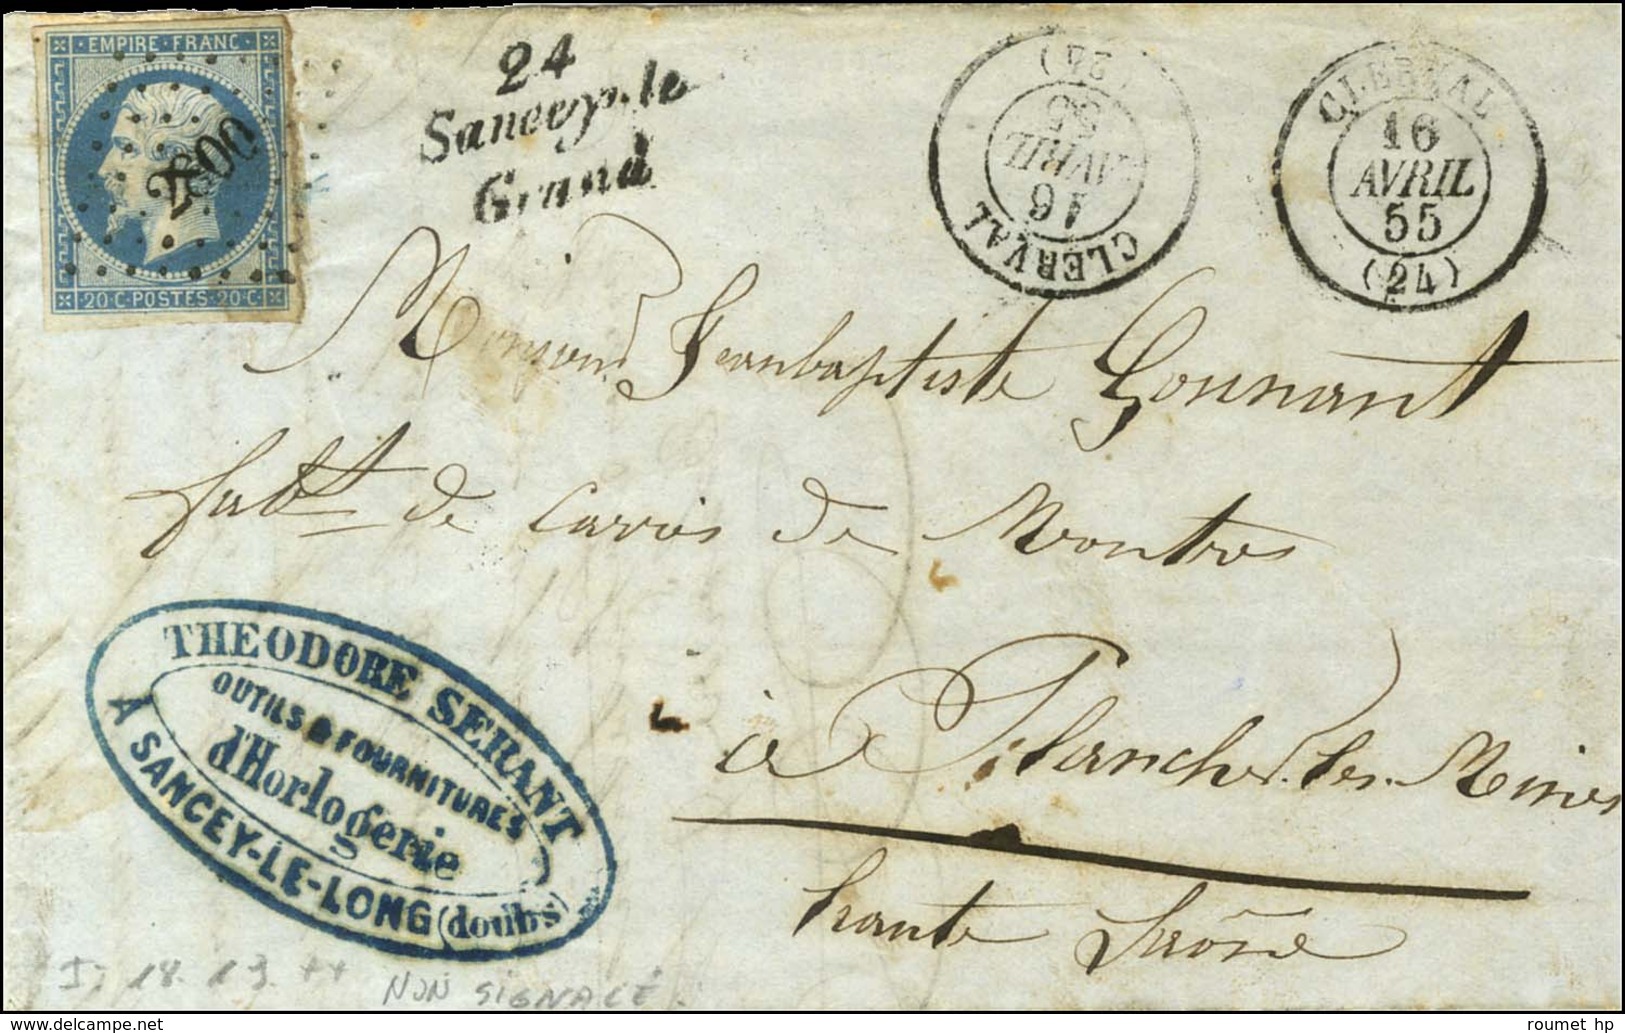 EMPIRE FRANC
20 C · POSTES · 20 C
24
Sancey-le
Grand
CLERVAL
16
AVRIL
55
(24)
CLERVAL
16
AVRIL
55
(24)
Monsieur Jeanbaptiste Gounant
fabt de Carrés de Montres
à Plancher les Mines
haute Saône
THEODORE SERANT
OUTILS & FOURNITURES
d'Horlogerie
A SANCEY-LE-LONG (doubs)
I: 18. 13 ++
NON SIGNALÉ.
roumet hp